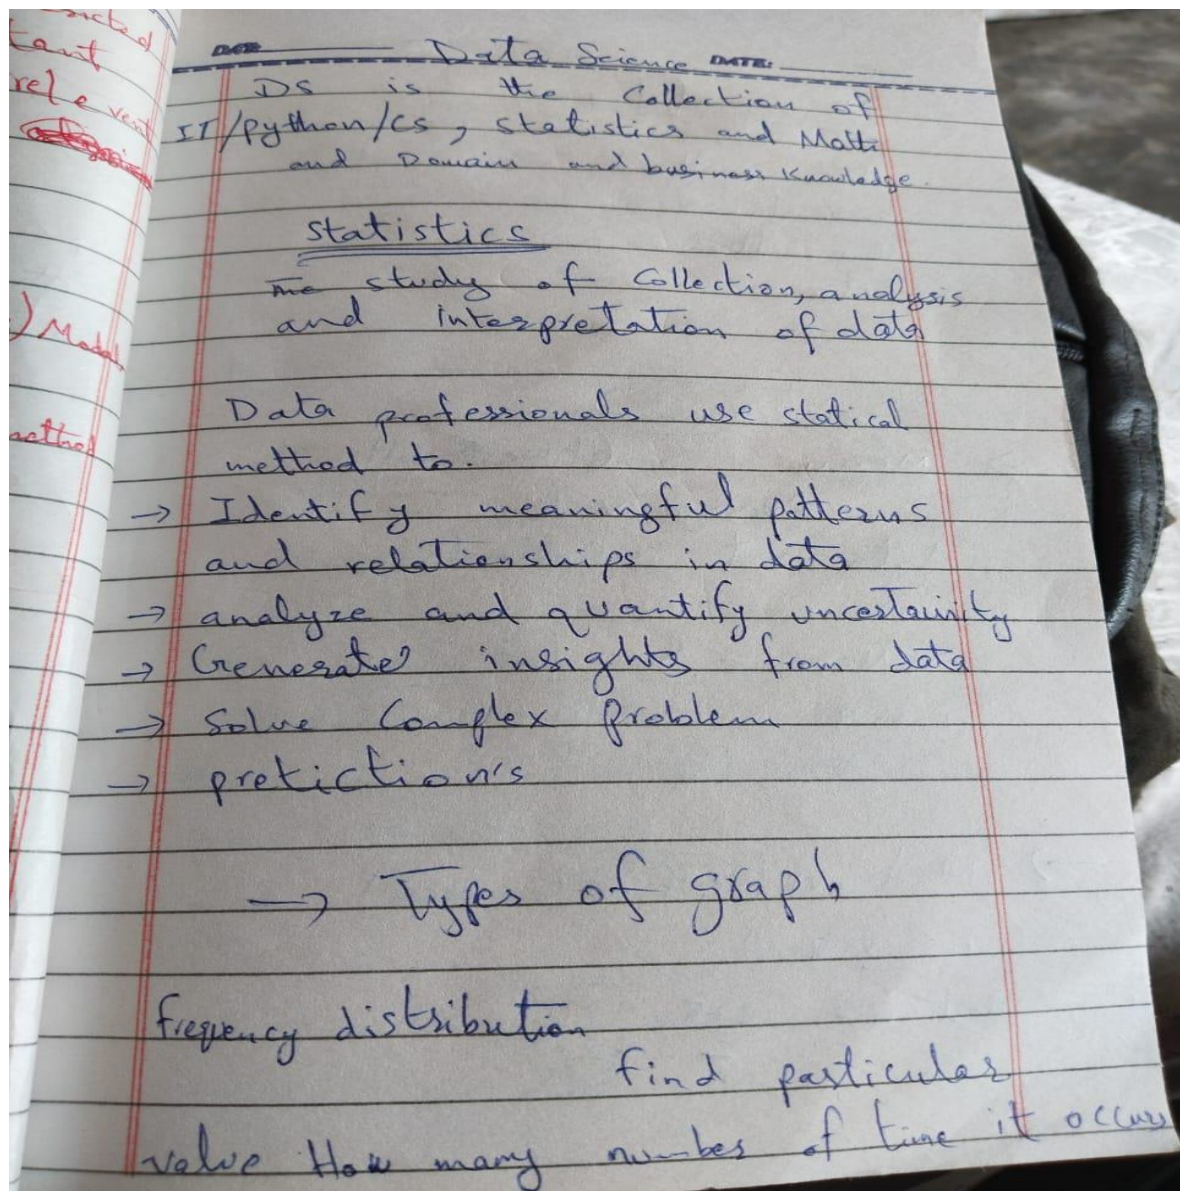 ricted
tant
relevent
) Model
method
DATE: Data Science DATE:
DS is the Collection of
IT/python/cs, statistics and Math
and Domain and business Knowledge.
statistics
The study of Collection, analysis
and interpretation of data
Data professionals use statical
method to.
→ Identify meaningful patterns
and relationships in data
→ analyze and quantify uncertainity
→ Generate insights from data
→ Solve Complex Problem
→ pretiction's
→ Types of graph
frequency distribution
find particular
value How many number of time it occurs